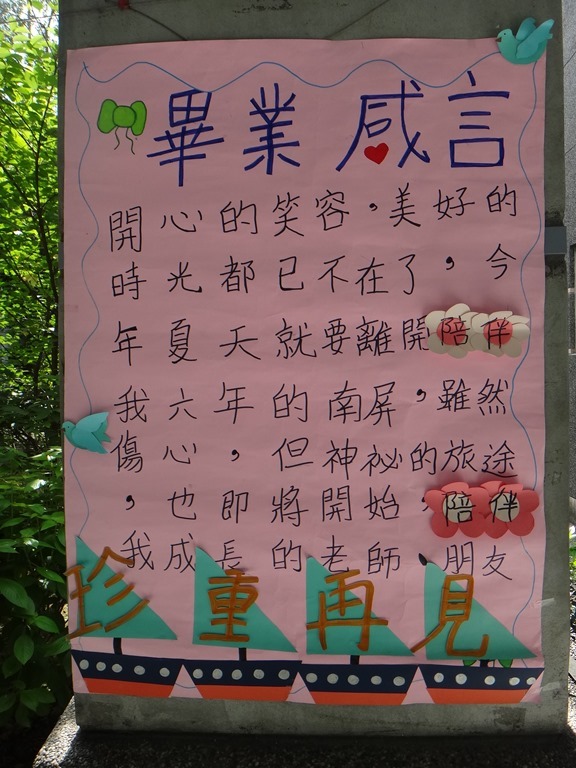 畢業感言
開心的笑容。美好的
時光都已不在了，今
年夏天就要離開陪伴
我六年的南屏，雖然
傷心，但神祕的旅途
，也即將開始，陪伴
我成長的老師、朋友
珍重再見